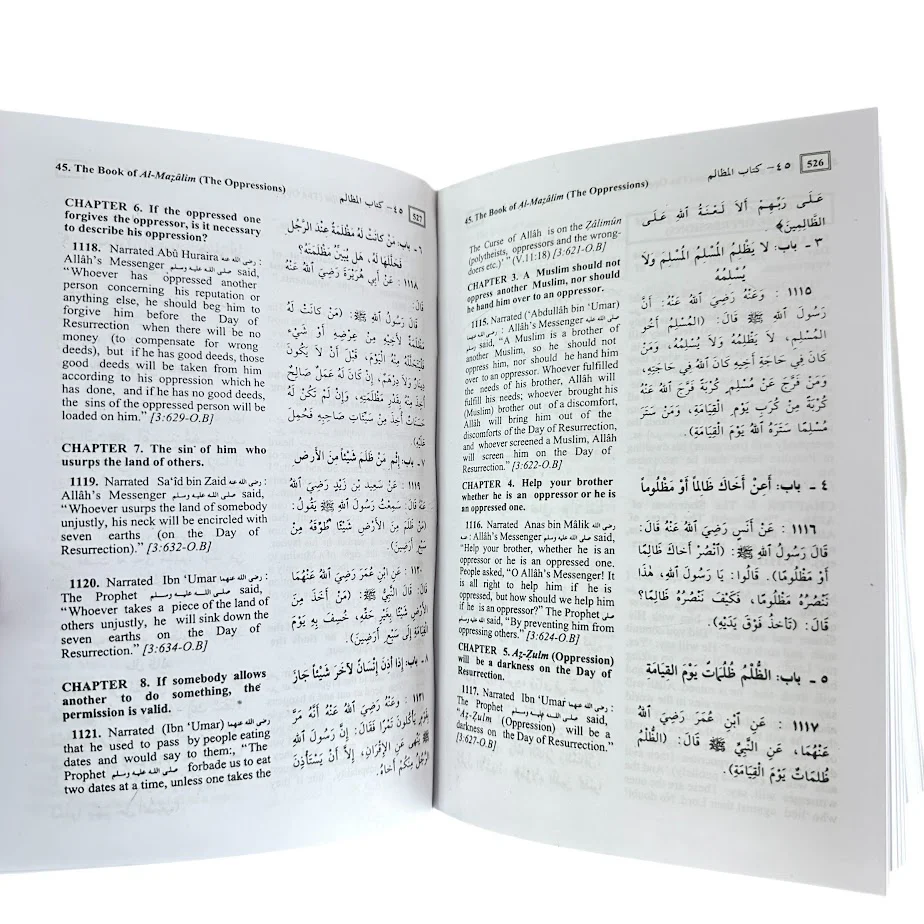 45. The Book of Al-Maẓâlim (The Oppressions)
٤٥- كتاب المظالم
526
The Curse of Allâh is on the Ẓâlimûn
(polytheists, oppressors and the wrong-
doers etc.)" (V.11:18) [3:621-O.B]
CHAPTER 3. A Muslim should not
oppress another Muslim, nor should
he hand him over to an oppressor.
1115. Narrated ('Abdullâh bin 'Umar)
رضي الله عنهما : Allâh's Messenger صلى الله عليه
وسلم said, "A Muslim is a brother of
another Muslim, so he should not
oppress him, nor should he hand him
over to an oppressor. Whoever fulfilled
the needs of his brother, Allâh will
fulfill his needs; whoever brought his
(Muslim) brother out of a discomfort,
Allâh will bring him out of the
discomforts of the Day of Resurrection,
and whoever screened a Muslim, Allâh
will screen him on the Day of
Resurrection." [3:622-O.B]
CHAPTER 4. Help your brother
whether he is an oppressor or he is
an oppressed one.
1116. Narrated Anas bin Mâlik رضي الله
عنه : Allâh's Messenger صلى الله عليه وسلم said,
"Help your brother, whether he is an
oppressor or he is an oppressed one.
People asked, "O Allâh's Messenger! It
is all right to help him if he is
oppressed, but how should we help him
if he is an oppressor?" The Prophet صلى
الله عليه وسلم said, "By preventing him from
oppressing others." [3:624-O.B]
CHAPTER 5. Aẓ-Ẓulm (Oppression)
will be a darkness on the Day of
Resurrection.
1117. Narrated Ibn 'Umar رضي الله عنهما :
The Prophet صلى الله عليه وسلم said,
"Aẓ-Ẓulm (Oppression) will be a
darkness on the Day of Resurrection."
[3:627-O.B]
عَلَى رَبِّهِمْ أَلاَ لَعْنَةُ اللهِ عَلَى
الظَّالِمِينَ﴾
٣ - باب: لا يَظْلِمُ المُسْلِمُ المُسْلِمَ وَلاَ
يُسْلِمُهُ
١١١٥ : وَعَنْهُ رَضِيَ اللهُ عَنْهُ: أَنَّ
رَسُولَ اللهِ ﷺ قَالَ: (المُسْلِمُ أَخُو
المُسْلِمِ، لاَ يَظْلِمُهُ وَلاَ يُسْلِمُهُ، وَمَنْ
كَانَ فِي حَاجَةِ أَخِيهِ كَانَ اللهُ فِي حَاجَتِهِ،
وَمَنْ فَرَّجَ عَنْ مُسْلِمٍ كُرْبَةً فَرَّجَ اللهُ عَنْهُ
كُرْبَةً مِنْ كُرَبِ يَوْمِ الْقِيَامَةِ، وَمَنْ سَتَرَ
مُسْلِمًا سَتَرَهُ اللهُ يَوْمَ الْقِيَامَةِ).
٤ - باب: أَعِنْ أَخَاكَ ظَالِماً أَوْ مَظْلُوماً
١١١٦ : عَنْ أَنَسٍ رَضِيَ اللهُ عَنْهُ قَالَ:
قَالَ رَسُولُ اللهِ ﷺ: (انْصُرْ أَخاكَ ظَالِمًا
أَوْ مَظْلُومًا). قَالُوا: يَا رَسُولَ اللهِ، هَذَا
نَنْصُرُهُ مَظْلُومًا، فَكَيْفَ نَنْصُرُهُ ظَالِمًا؟
قَالَ: (تَأْخُذُ فَوْقَ يَدَيْهِ).
٥ - باب: الظُّلْمُ ظُلُمَاتٌ يَوْمَ القِيَامَةِ
١١١٧ : عَنِ ابْنِ عُمَرَ رَضِيَ اللهُ
عَنْهُمَا، عَنِ النَّبِيِّ ﷺ قَالَ: (الظُّلْمُ
ظُلُمَاتٌ يَوْمَ الْقِيَامَةِ).
45. The Book of Al-Maẓâlim (The Oppressions)
٤٥- كتاب المظالم
527
CHAPTER 6. If the oppressed one
forgives the oppressor, is it necessary
to describe his oppression?
1118. Narrated Abû Huraira رضي الله عنه :
Allâh's Messenger صلى الله عليه وسلم said,
"Whoever has oppressed another
person concerning his reputation or
anything else, he should beg him to
forgive him before the Day of
Resurrection when there will be no
money (to compensate for wrong
deeds), but if he has good deeds, those
good deeds will be taken from him
according to his oppression which he
has done, and if he has no good deeds,
the sins of the oppressed person will be
loaded on him." [3:629-O.B]
CHAPTER 7. The sin of him who
usurps the land of others.
1119. Narrated Sa'îd bin Zaid رضي الله عنه :
Allâh's Messenger صلى الله عليه وسلم said,
"Whoever usurps the land of somebody
unjustly, his neck will be encircled with
seven earths (on the Day of
Resurrection)." [3:632-O.B]
1120. Narrated Ibn 'Umar رضي الله عنهما :
The Prophet صلى الله عليه وسلم said,
"Whoever takes a piece of the land of
others unjustly, he will sink down the
seven earths on the Day of
Resurrection." [3:634-O.B]
CHAPTER 8. If somebody allows
another to do something, the
permission is valid.
1121. Narrated (Ibn 'Umar) رضي الله عنهما
that he used to pass by people eating
dates and would say to them:, "The
Prophet صلى الله عليه وسلم forbade us to eat
two dates at a time, unless one takes the
٦ - باب: مَنْ كَانَتْ لَهُ مَظْلَمَةٌ عِنْدَ الرَّجُلِ
فَحَلَّلَهَا لَهُ، هَلْ يُبَيِّنُ مَظْلَمَتَهُ؟
١١١٨ : عَنْ أَبِي هُرَيْرَةَ رَضِيَ اللهُ عَنْهُ
قَالَ:
قَالَ رَسُولُ اللهِ ﷺ: (مَنْ كَانَتْ لَهُ
مَظْلَمَةٌ لأَخِيهِ مِنْ عِرْضِهِ أَوْ شَيْءٍ
فَلْيَتَحَلَّلْهُ مِنْهُ الْيَوْمَ، قَبْلَ أَنْ لاَ يَكُونَ
دِينَارٌ وَلاَ دِرْهَمٌ، إِنْ كَانَ لَهُ عَمَلٌ صَالِحٌ
أُخِذَ مِنْهُ بِقَدْرِ مَظْلَمَتِهِ، وَإِنْ لَمْ تَكُنْ لَهُ
حَسَنَاتٌ أُخِذَ مِنْ سَيِّئَاتِ صَاحِبِهِ فَحُمِلَ
عَلَيْهِ).
٧ - باب: إِثْمِ مَنْ ظَلَمَ شَيْئاً مِنَ الأَرضِ
١١١٩ : عَنْ سَعِيدِ بْنِ زَيْدٍ رَضِيَ اللهُ
عَنْهُ قَالَ: سَمِعْتُ رَسُولَ اللهِ ﷺ يَقُولُ:
(مَنْ ظَلَمَ مِنَ الأَرْضِ شَيْئًا طُوِّقَهُ مِنْ
سَبْعِ أَرَضِينَ).
١١٢٠ : عَنِ ابْنِ عُمَرَ رَضِيَ اللهُ عَنْهُمَا
قَالَ: قَالَ النَّبِيُّ ﷺ: (مَنْ أَخَذَ مِنَ
الأَرْضِ شَيْئًا بِغَيْرِ حَقِّهِ، خُسِفَ بِهِ يَوْمَ
الْقِيَامَةِ إِلَى سَبْعِ أَرَضِينَ).
٨ - باب: إِذَا أَذِنَ إِنْسَانٌ لآخَرَ شَيْئاً جَازَ
١١٢١ : وَعَنْهُ رَضِيَ اللهُ عَنْهُ أَنَّهُ مَرَّ
بِقَوْمٍ يَأْكُلُونَ تَمْرًا فَقَالَ: إِنَّ رَسُولَ اللهِ
ﷺ نَهَى عَنِ الإِقْرَانِ، إِلاَّ أَنْ يَسْتَأْذِنَ
الرَّجُلُ مِنْكُمْ أَخَاهُ.